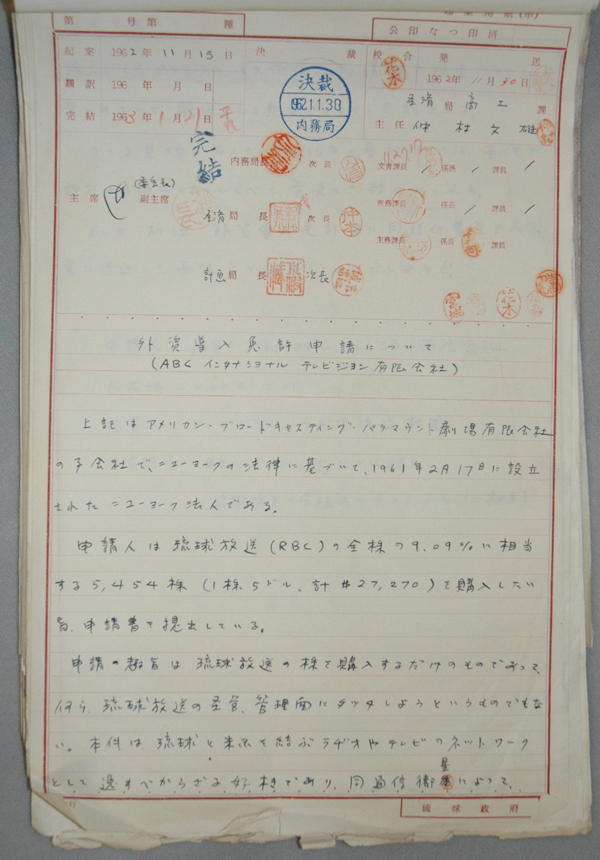 第 号 第 種
公印なつ印済
起案 1962年11月15日 決 裁 校合 発 送
1962年11月30日
飜訳 196 年 月 日
決裁
1962.11.30
内務局
経済局 商工 課
完結 1963年1月21日
主任 仲村文雄
完結
内務局長 次長 文書課長 係長 課員
主席 副主席
経済局 長 次長 庶務課長 係長 課員
主務課長 係長 課員
計画局 長 次長
外資導入免許申請について
(ABCインタナショナル テレビジョン有限会社)
上記はアメリカン・ブロードキャスティング・パラマウンド劇場有限会社
の子会社で、ニューヨークの法律に基づいて、1961年2月17日に設立
されたニューヨーク法人である。
申請人は琉球放送(RBC)の全株の9.09%に相当
する5,454株(1株5ドル、計$27,270)を購入したい
旨、申請書を提出している。
申請の趣旨は琉球放送の株を購入するだけのものであって、
何ら、琉球放送の経営、管理面にタッチしようというものでもな
い。本件は、琉球と米国を結ぶラヂオやテレビのネットワーク
として逸すべからざる好機であり、同通信衛星によって、
琉球政府